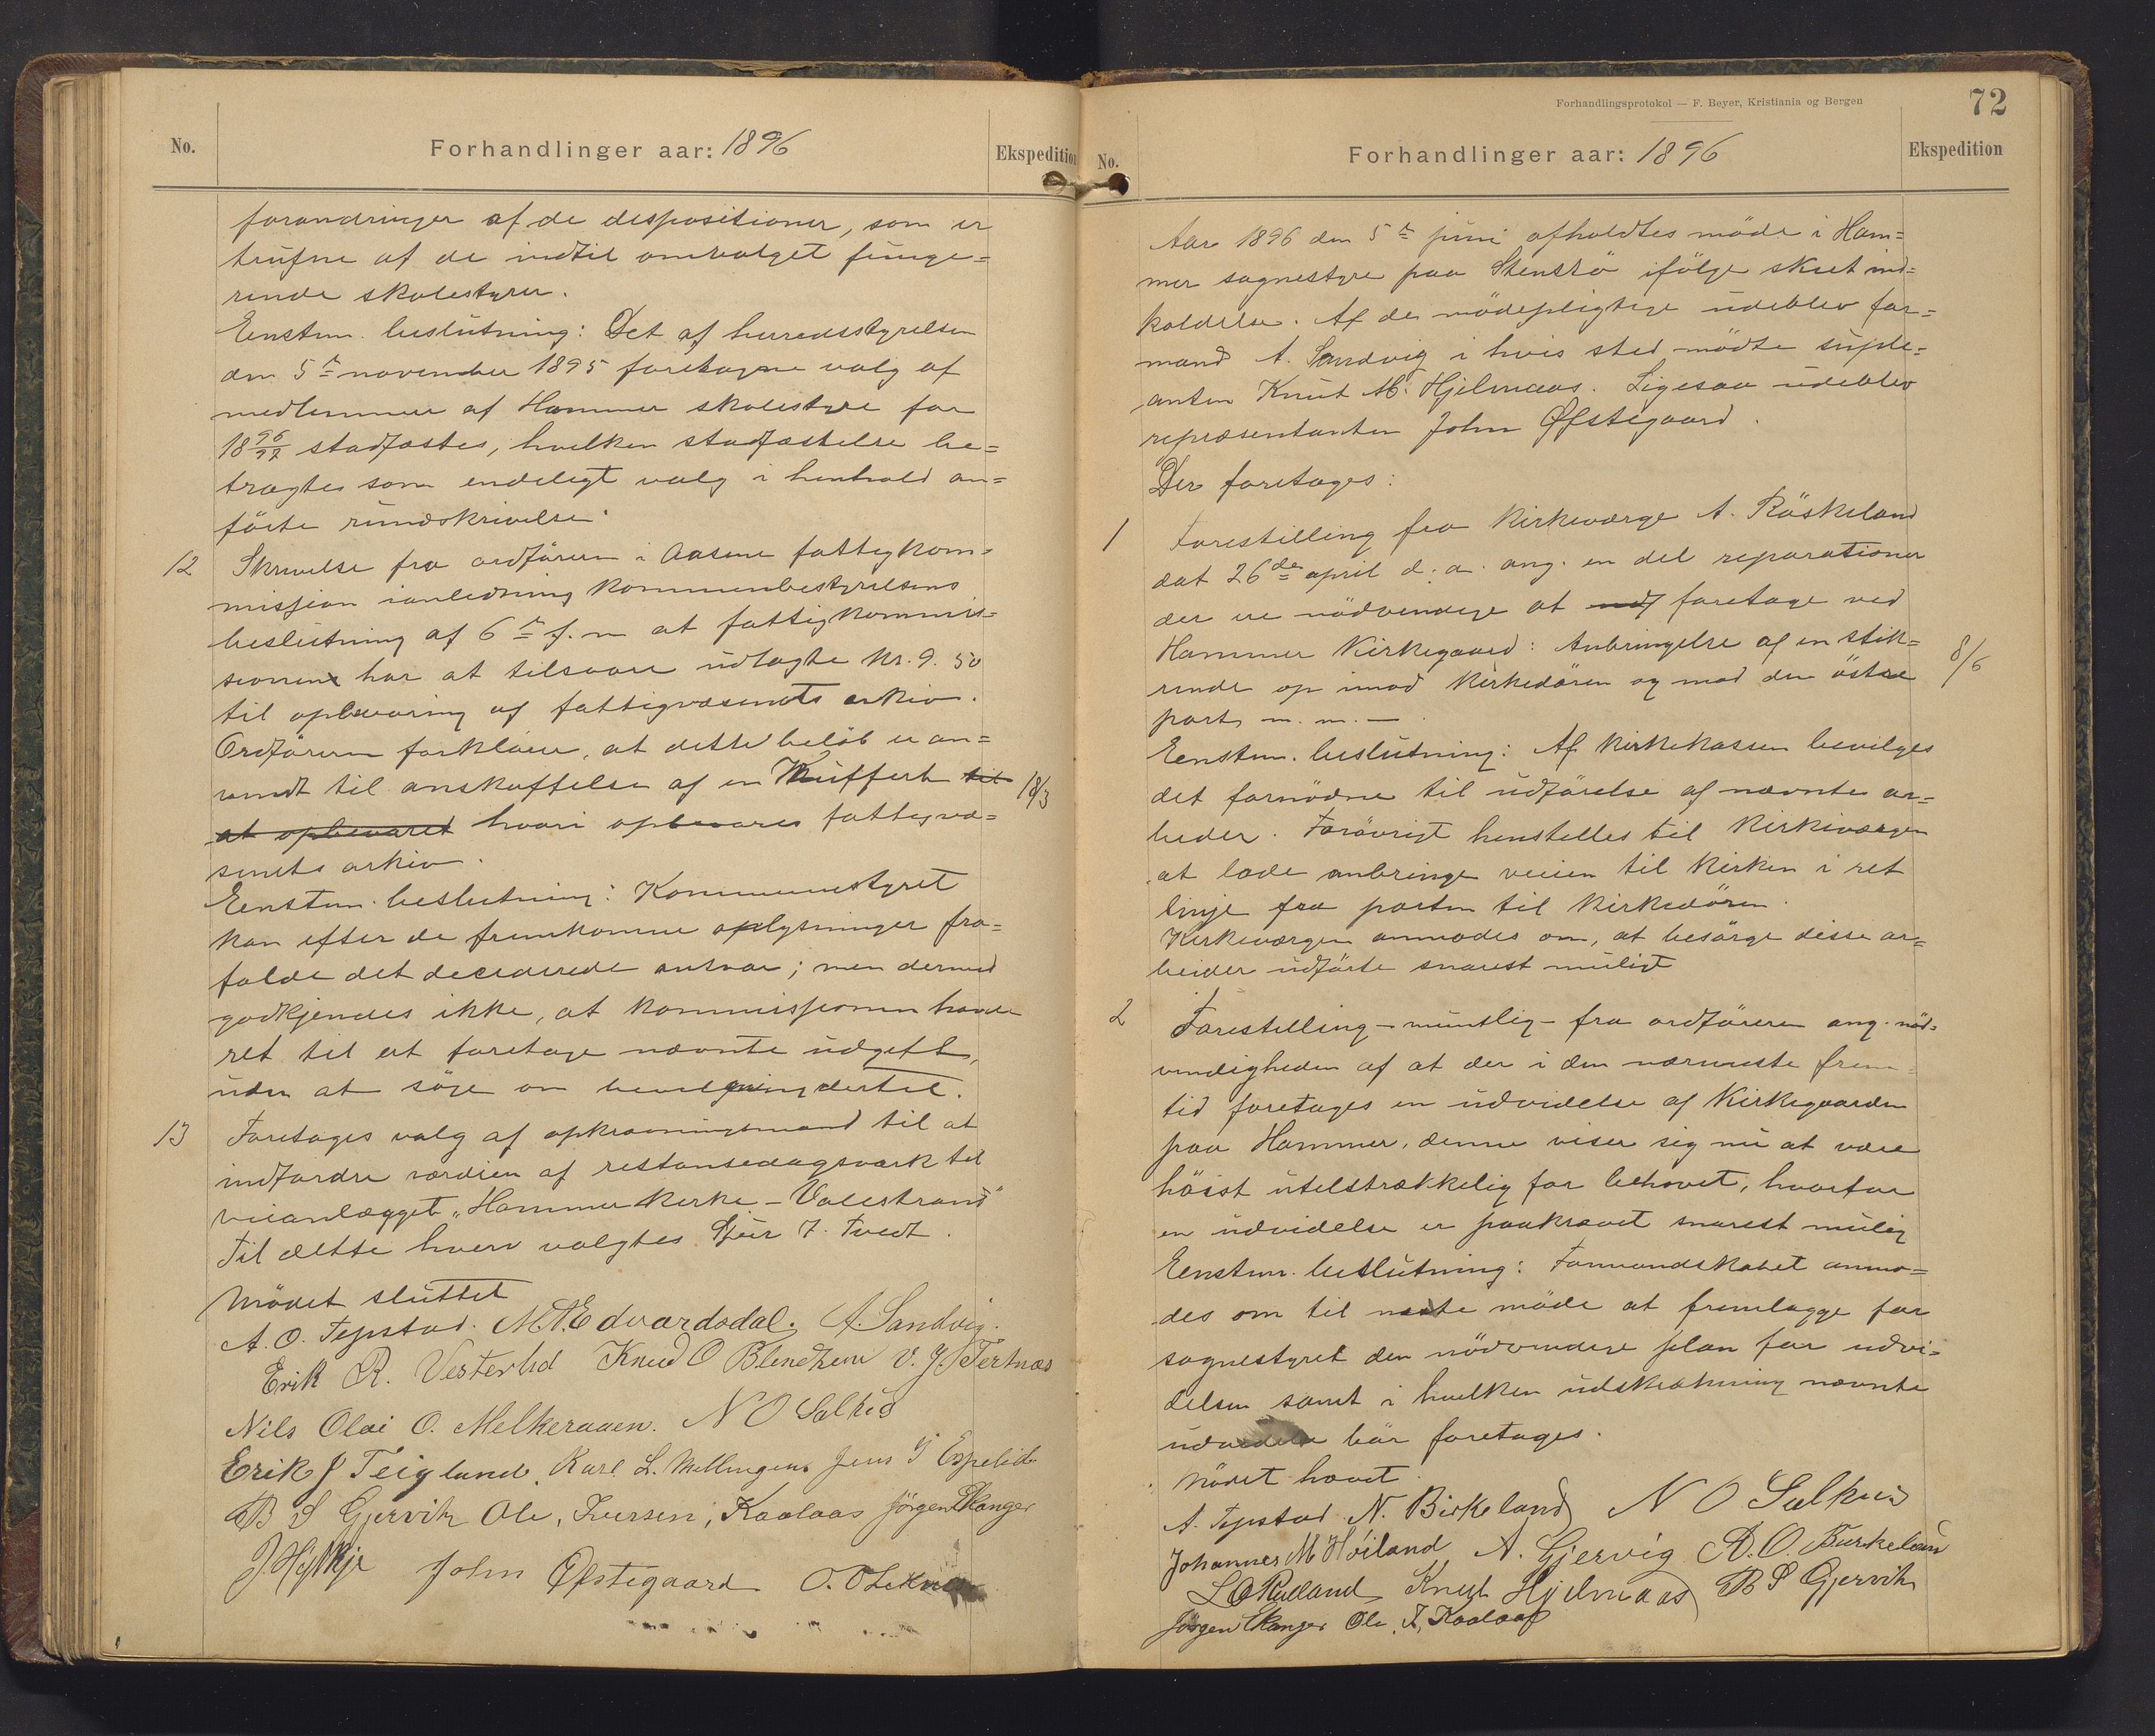 No.
Forhandlinger aar: 1896
Ekspedition
forandringer af de despositioner, som er
trufne af de indtil omvalget funge=
rende skolestyrer.
Eenstm. beslutning: Det af herredsstyrelsen
den 5te november 1895 foretagne valg af
medlemmer af Hammer skolestyre for
1896/97 stadfæstes, hvilken stadfæstelse be=
tragtes som endeligt valg i henhold an=
förte rundskrivelse.
12 Skrivelse fra ordföreren i Aasene fattigkom=
mission ianledning kommunebestyrelsens
beslutning af 6te f. m at fattigkommis=
sionen har at tilsvare udlagte kr. 9. 50
til opbevaring af fattigvæsenets arkiv.
Ordföreren forklarer, at dette belöb er an=
vendt til anskaffelse af en Kuffert til 18/3
at opbevaret hvori opbevares fattigvæ=
senets arkiv.
Eenstm. beslutning: Kommunestyret
kan efter de fremkomne oplysninger fra=
falde det deciderede ansvar; men dermed
godkjendes ikke, at kommissionen havde
ret til at foretage nævnte udgift,
uden at söge om bevilgning dertil.
13 Foretages valg af opkrævningsmand til at
indfordre værdien af restansedagsværk til
veianlægget "Hammer kirke - Valestrand"
Til dette hverv valgtes Sjur J. Tvedt.
Mödet sluttet
A. O. Tepstad. M. A. Edvardsdal. A. Sandvig.
Erik R. Vesterlid Knud O Blindheim V. J. Tertnæs
Nils Olai O. Melkeraaen. N O Salhus
Erik J Teigland. Karl L. Mellingen Jens J Espelid
B S Gjervik Ole, Iversen, Kaalaas Jörgen Ekanger
J. Hylkje John Øfstegaard O. O Leknes
Forhandlingsprotokol — F. Beyer, Kristiania og Bergen
72
No.
Forhandlinger aar: 1896
Ekspedition
Aar 1896 den 5te juni afholdtes möde i Ham=
mer sognestyre paa Stenstö ifölge skeet ind=
kaldelse. Af de mödepligtige udeblev for=
mand A. Sandvig i hvis sted mödte suple=
anten Knut M. Hjelmaas. Ligesaa udeblev
repræsentanten John Øfstegaard.
Der foretages:
1 Forestilling fra kirkeværge A. Röskeland
dat 26de april d. a. ang. en del reparationer
der ere nödvendige at foretage ved
Hammer Kirkegaard: Anbringelse af en stik= 8/6
rende op imod kirkedören og mod den östre
port m. m. —
Eenstm. beslutning: Af kirkekassen bevilges
det fornödne til udförelse af nævnte ar=
beider. Forövrigt henstilles til kirkeværgen
at lade anbringe veiien til kirken i ret
linje fra porten til kirkedören.
Kirkeværgen anmodes om, at besörge disse ar=
beider udförte snarest muligt
2 Forestilling - muntlig - fra ordföreren ang. nöd=
vendigheden af at der i den nærmeste frem=
tid foretages en udvidelse af kirkegaarden
paa Hammer, denne viser sig nu at være
höist utilstrækkelig for behovet, hvorfor
en udvidelse er paakrævet snarest mulig
Eenstm. beslutning: Formandskabet anmo=
des om til næste möde at fremlægge for
sognestyret den nödvendige plan for udvi=
delsen samt i hvilken udstrækning nævnte
udvidelse bör foretages.
Mödet hævet.
A. Tepstad N. Birkeland N O Salhus
Johannes M Höiland A. Gjervig A. O. Burkeland
L O Rulland Knut Hjelmaas B S Gjervik
Jörgen Ekanger Ole. I. Kaalaas